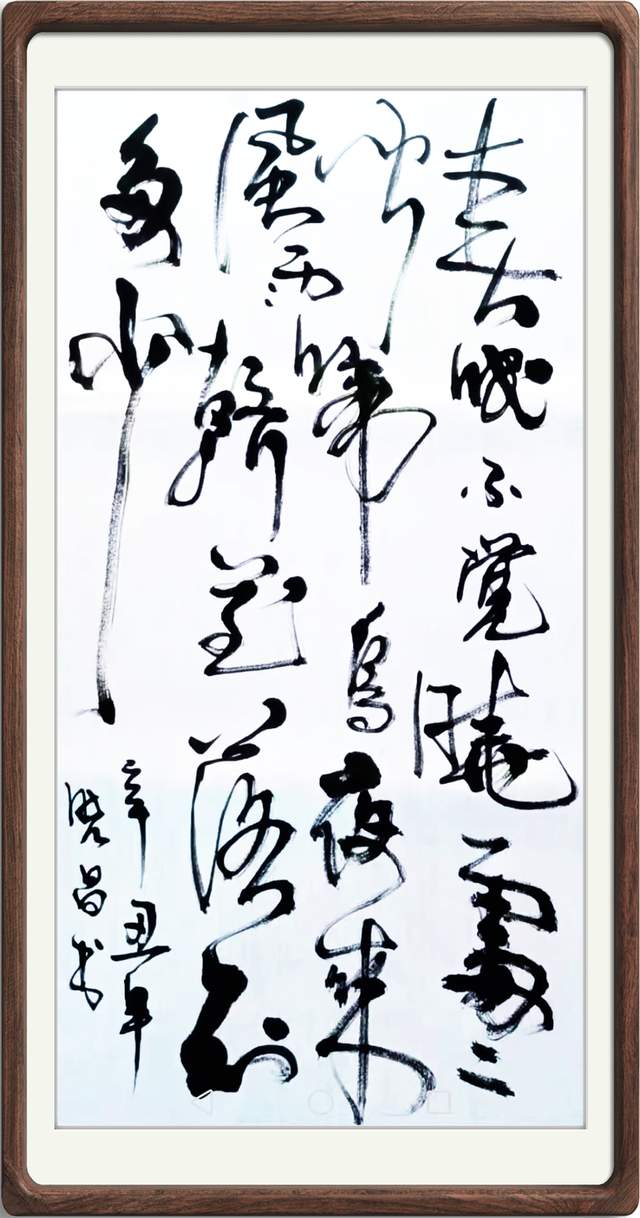 春眠不覺曉處〻
聞啼鳥夜來
風雨聲花落知
多少
辛丑年
昌书